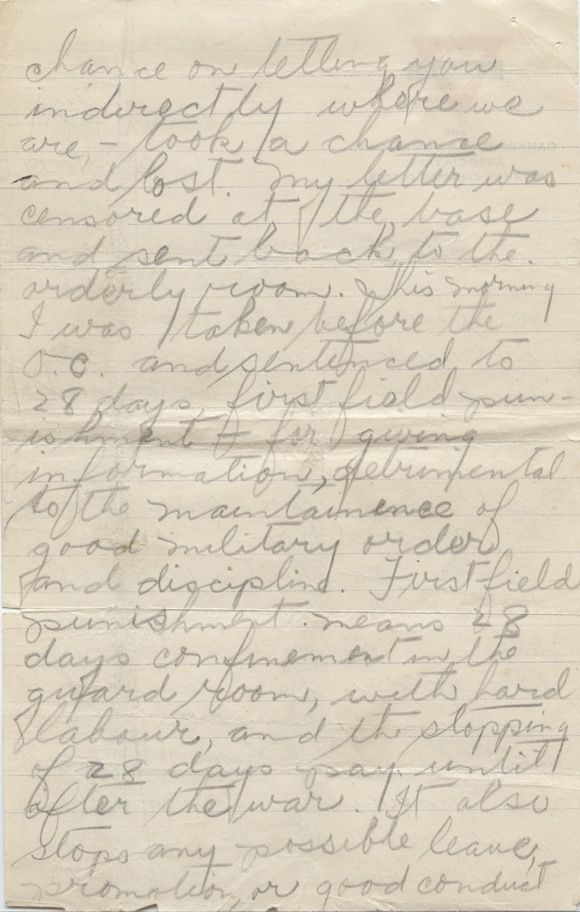 chance on letting you
indirectly where we
are, - took a chance
and lost. My letter was
censored at the base
and sent back to the.
orderly room. This morning
I was taken before the
O.C. and sentenced to
28 days, first field pun-
ishment - for giving
information, detrimental
to the maintainence of
good military order
and discipline. First field
punishment. means 28
days confinement in the
guard room, with hard
labour, and the stopping
of 28 days pay. until
after the war. It also
stops any possible leave,
promotion, or good conduct